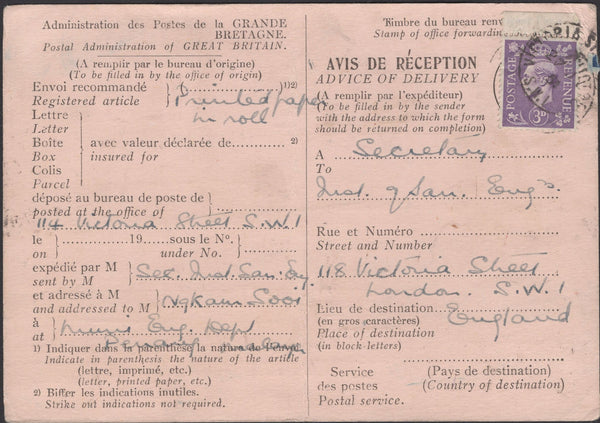 Administration des Postes de la GRANDE
BRETAGNE.
Postal Administration of GREAT BRITAIN.
(A remplir par le bureau d'origine)
(To be filled in by the office of origin)
Envoi recommandé
Registered article
1)2)
Printed paper
in roll
Lettre
Letter
Boîte
Box
avec valeur déclarée de
insured for
2)
Colis
Parcel
déposé au bureau de poste de
posted at the office of
114 Victoria Street S.W.1
le
on
19 sous le No.
under No.
expédié par M
sent by M
Sec. Inst. San. Eng.
et adressé à M
and addressed to M
Ng Kam Soon
à
at
Eng. Dept
Penang
1) Indiquer dans la parenthèse la nature de l'envoi
Indicate in parenthesis the nature of the article
(lettre, imprimé, etc.)
(letter, printed paper, etc.)
2) Biffer les indications inutiles.
Strike out indications not required.
Timbre du bureau
Stamp of office
AVIS DE RÉCEPTION
ADVICE OF DELIVERY
(A remplir par l'expéditeur)
(To be filled in by the sender
with the address to which the form
should be returned on completion)
A
To
Secretary
Inst. of San. Engs.
Rue et Numéro
Street and Number
118 Victoria Street
London. S.W.1
Lieu de destination
(en gros caractères)
Place of destination
(in block letters)
England
Service
des postes
Postal service.
(Pays de destination)
(Country of destination)
POSTAGE
REVENUE
3D